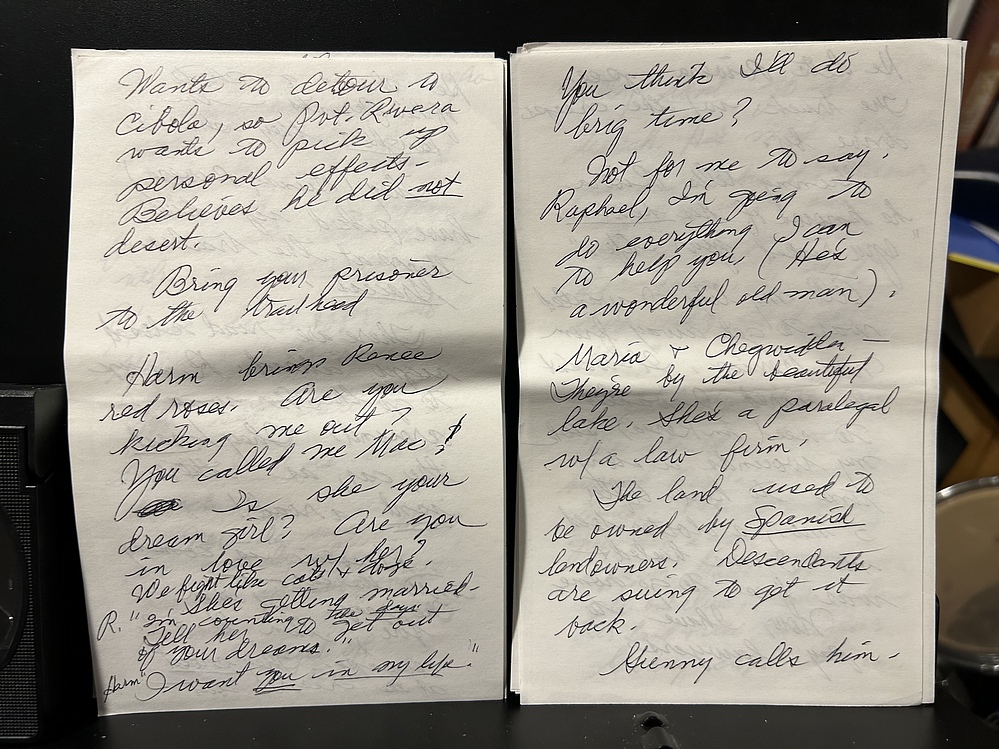 Wants to detour to
Cibola, so Pvt. Rivera
wants to pick up
personal effects-
Believes he did not
desert.
Bring your prisoner
to the trailhead
Harm brings Renee
red roses. Are you
kicking me out?
You called me Mac!
Is she your
dream girl? Are you
in love w/ her?
We fight like cats & dogs.
She's getting married.
R. "I'm counting the days
Tell her to get out
of your dreams."
Harm "I want you in my life."
You think I'll do
brig time?
Not for me to say.
Raphael, I'm going to
do everything I can
to help you. (He's
a wonderful old man).
Maria & Chegwidden -
They're by the beautiful
lake. She's a paralegal
w/a law firm.
The land used to
be owned by Spanish
landowners. Descendants
are suing to get it
back.
calls him.